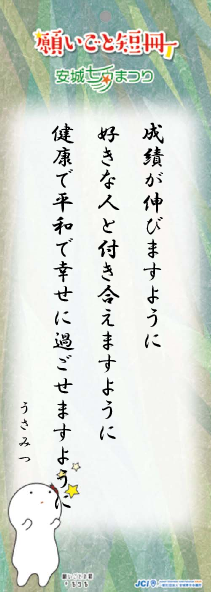 願いごと短冊
安城七夕まつり
成績が伸びますように
好きな人と付き合えますように
健康で平和で幸せに過ごせますように
うさみつ
JCI